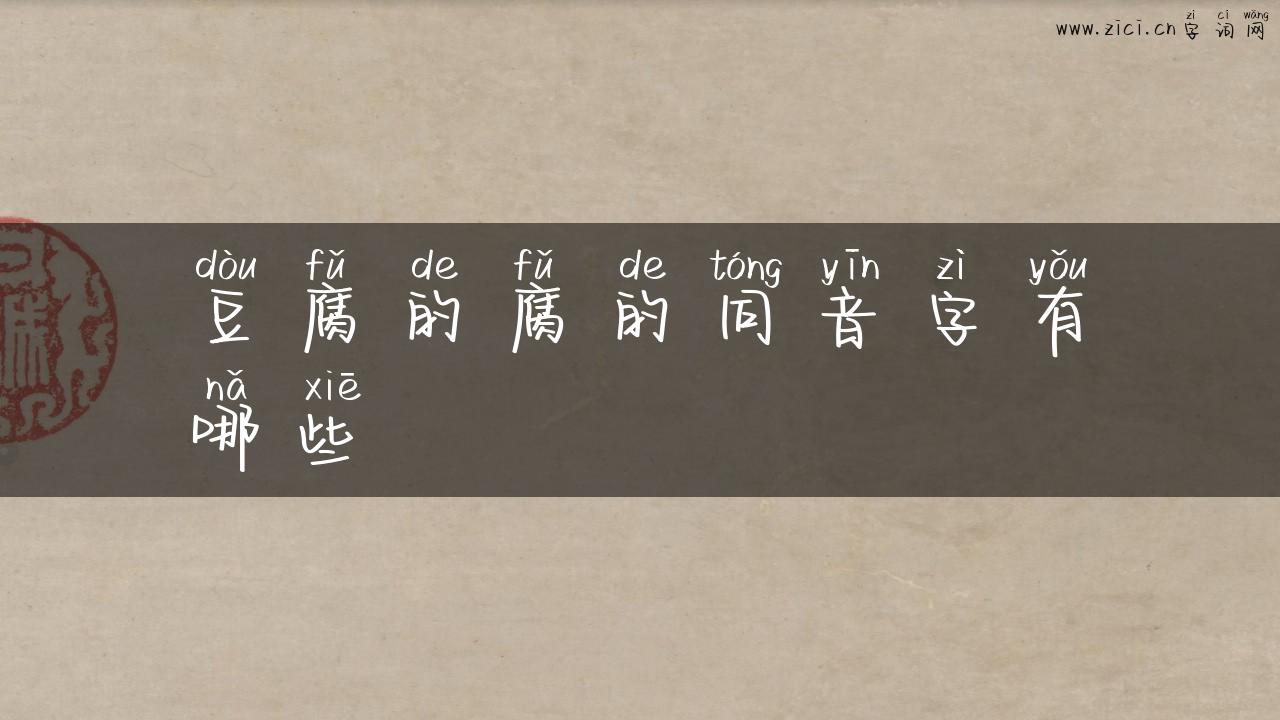 zì cí wǎng
www.zici.cn 字词网
dòu fǔ de fǔ de tóng yīn zì yǒu
豆腐的腐的同音字有
nǎ xiē
哪些